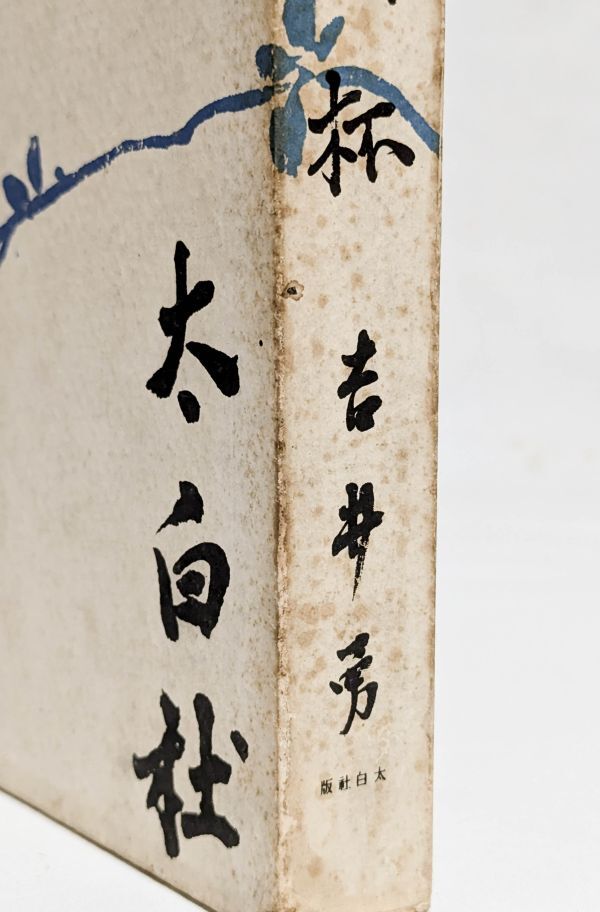 太白社
杯
吉井勇
版社白太